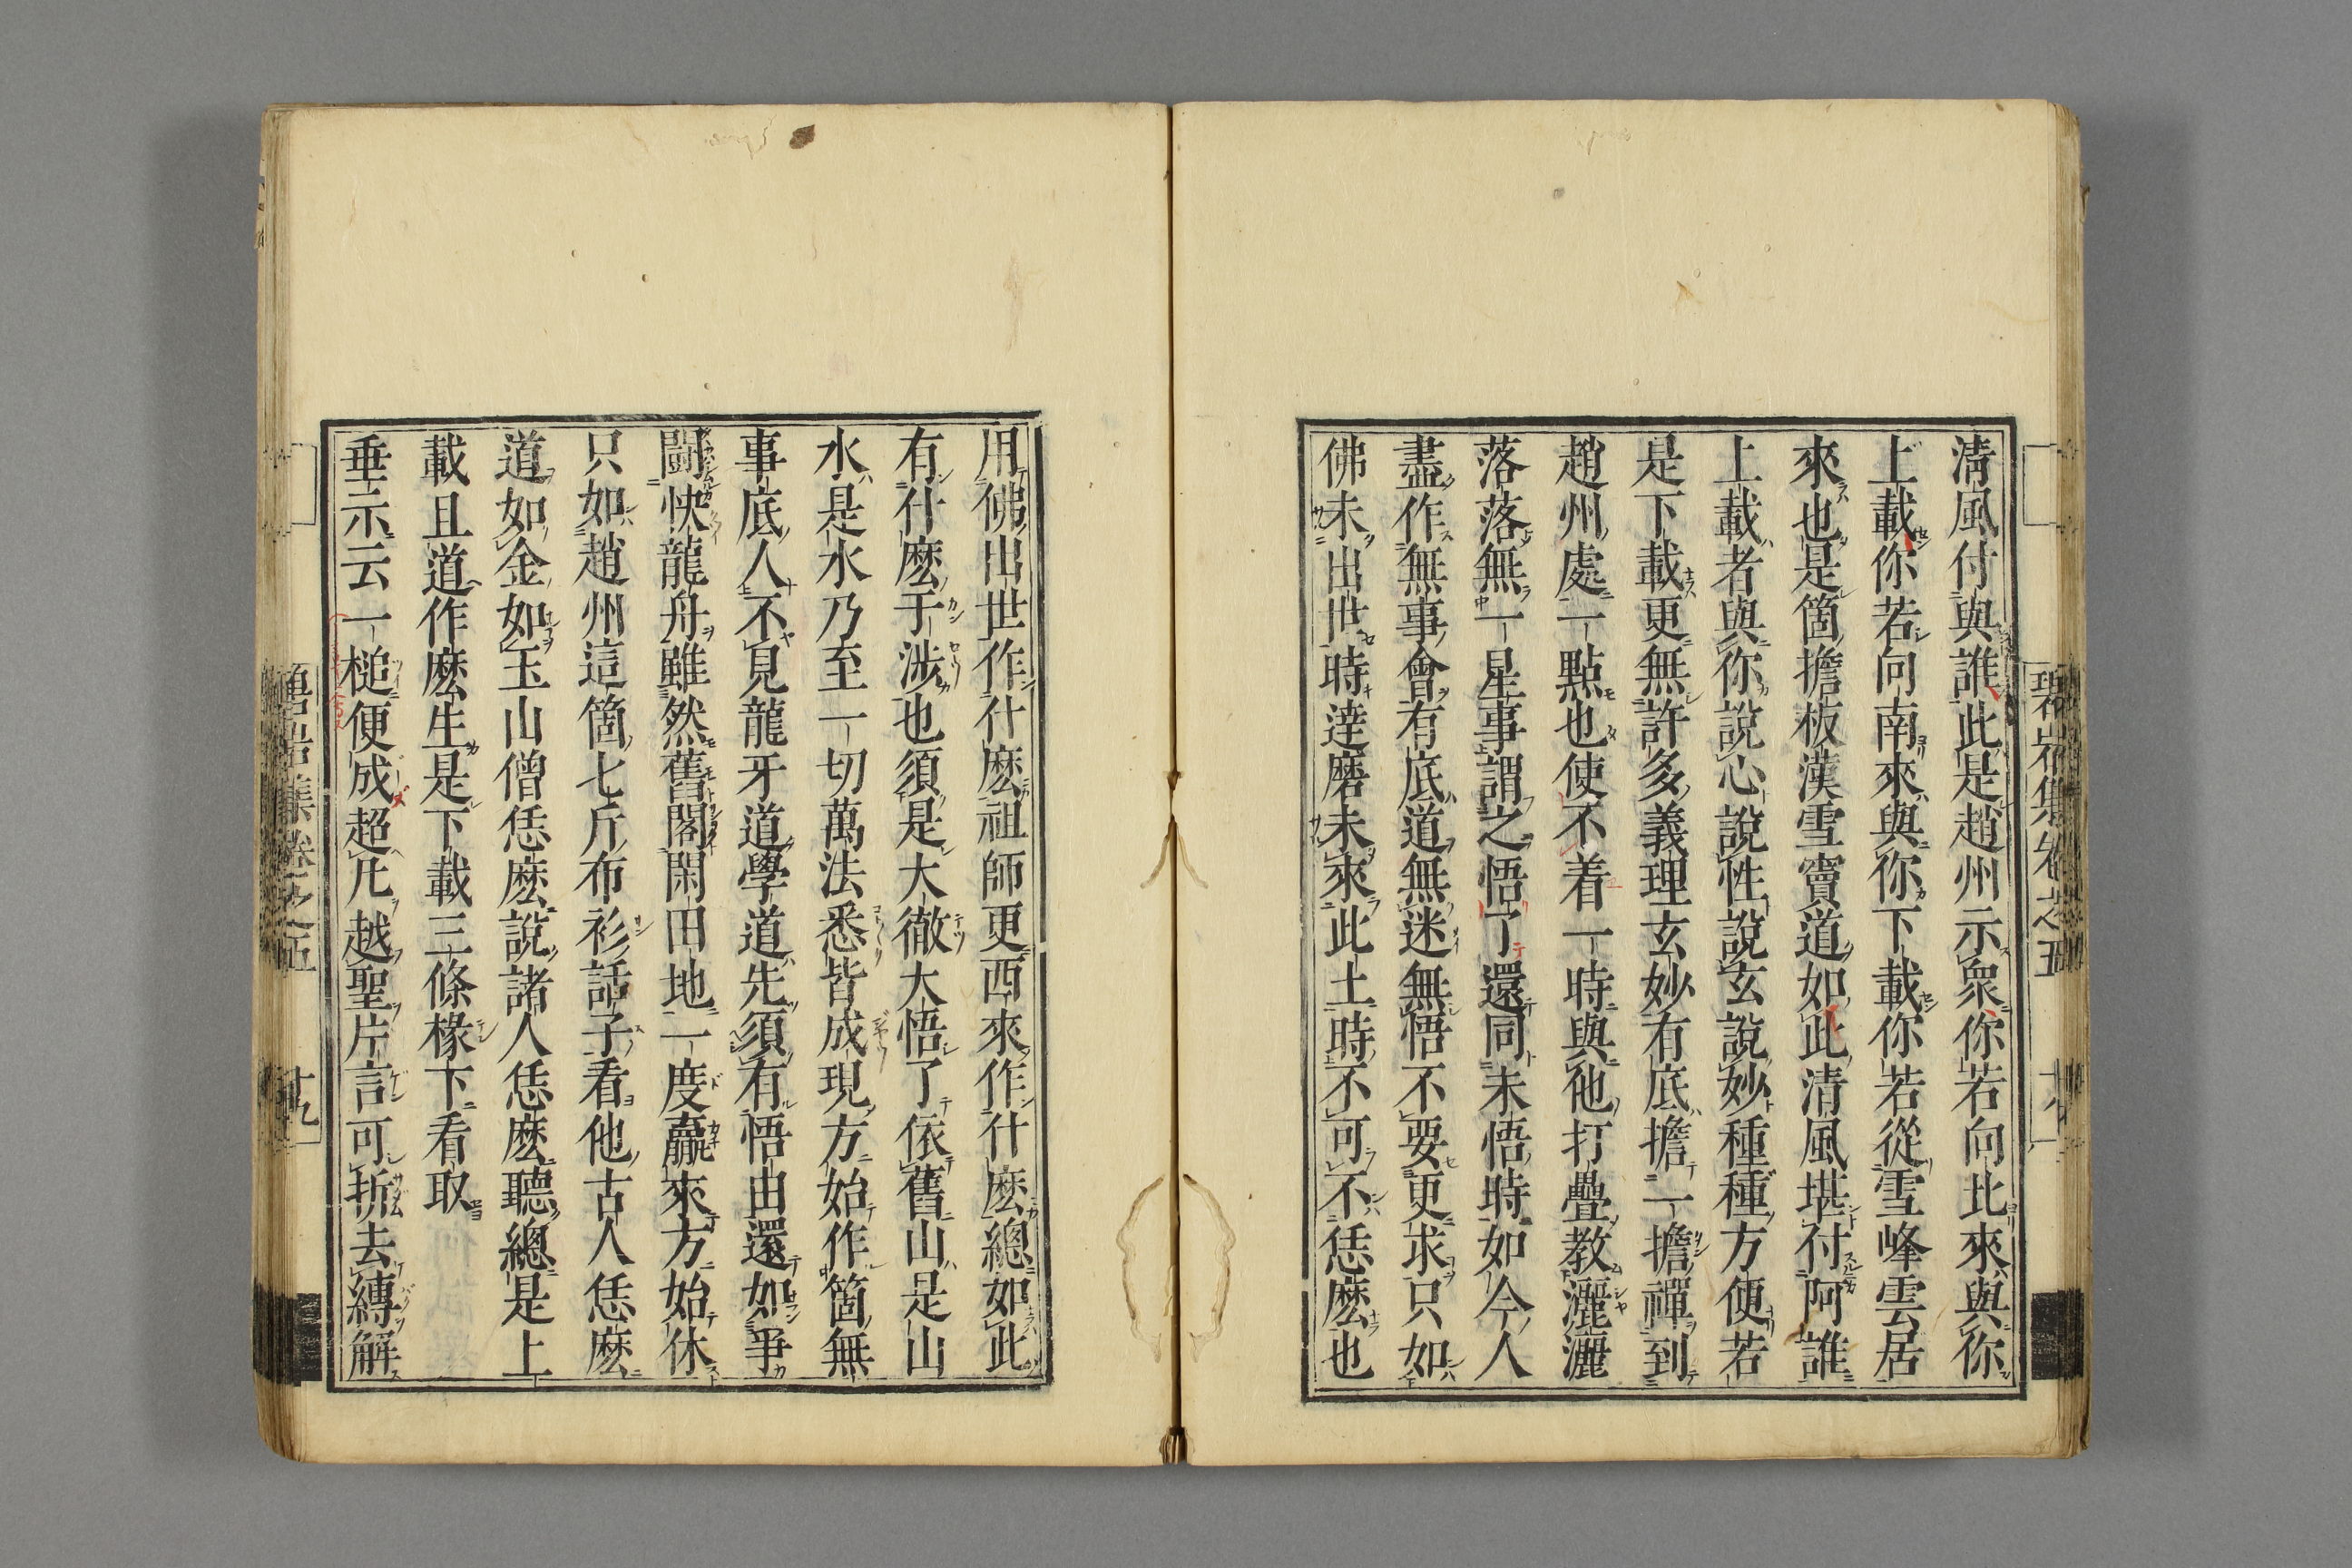 碧岩集卷之五
十八
淸風付與誰此是趙州示衆你若向北來與你
上載你若向南來與你下載你若從雪峰雲居
來也是箇擔板漢雪竇道如此淸風堪付阿誰
上載者與你說心說性說玄說妙種種方便若
是下載更無許多義理玄妙有底擔一擔禪到
趙州處一點也使不着一時與他打疊教灑灑
落落無一星事謂之悟了還同未悟時如今人
盡作無事會有底道無迷無悟不要更求只如
佛未出世時達磨未來此土時不可不恁麽也
用佛出世作什麽祖師更西來作什麽總如此
有什麽干涉也須是大徹大悟了依舊山是山
水是水乃至一切萬法悉皆成現方始作箇無
事底人不見龍牙道學道先須有悟由還如爭
鬪快龍舟雖然舊閣閑田地一度贏來方始休
只如趙州這箇七斤布衫話子看他古人恁麽
道如金如玉山僧恁麽說諸人恁麽聽總是上
載且道作麽生是下載三條椽下看取
垂示云一槌便成超凡越聖片言可折去縛解
碧岩集卷之五
十九